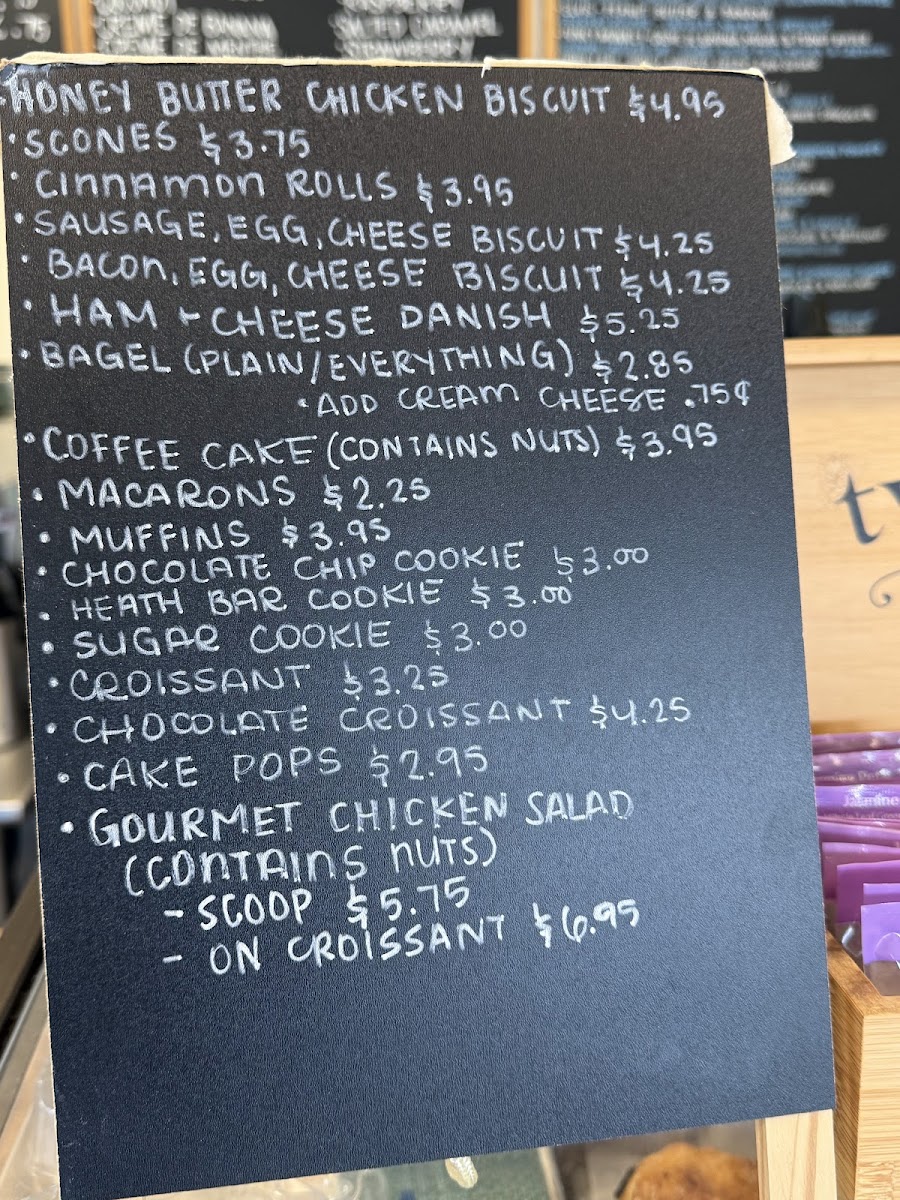 CREME DE BANANA
SALTED CARAMEL
STRAWBERRY
HONEY BUTTER CHICKEN BISCUIT $4.95
•SCONES $3.75
•CINNAMON ROLLS $3.95
•SAUSAGE, EGG, CHEESE BISCUIT $4.25
•BACON, EGG, CHEESE BISCUIT $4.25
•HAM + CHEESE DANISH $5.25
•BAGEL (PLAIN/EVERYTHING) $2.85
•ADD CREAM CHEESE .75¢
•COFFEE CAKE (CONTAINS NUTS) $3.95
•MACARONS $2.25
•MUFFINS $3.95
•CHOCOLATE CHIP COOKIE $3.00
•HEATH BAR COOKIE $3.00
•SUGAR COOKIE $3.00
•CROISSANT $3.25
•CHOCOLATE CROISSANT $4.25
•CAKE POPS $2.95
•GOURMET CHICKEN SALAD
(CONTAINS NUTS)
- SCOOP $5.75
- ON CROISSANT $6.95
Jasmine